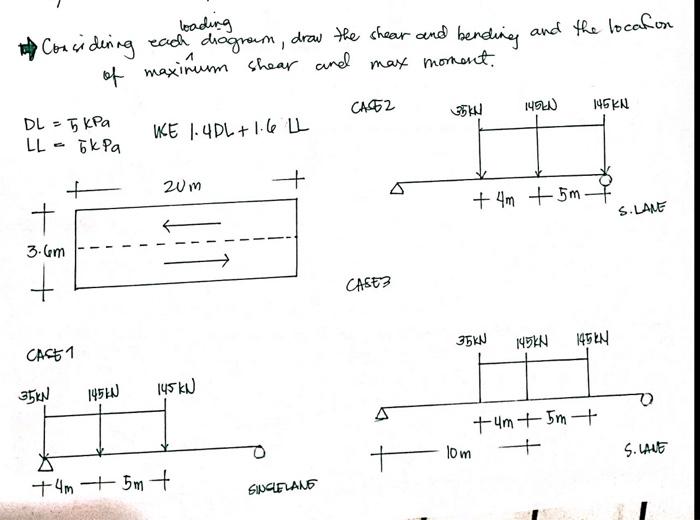 loading
Considering each diagram, draw the shear and bending and the location
of maximum shear and max moment.
DL = 5 kPa
LL = 5 kPa
USE 1.4DL + 1.6 LL
20m
3.6m
CASE 1
35KN 145KN 145KN
4m 5m
SINGLE LANE
CASE 2
35KN 145KN 145KN
4m 5m
S. LANE
CASE 3
35KN 145KN 145KN
4m 5m
10m
S. LANE